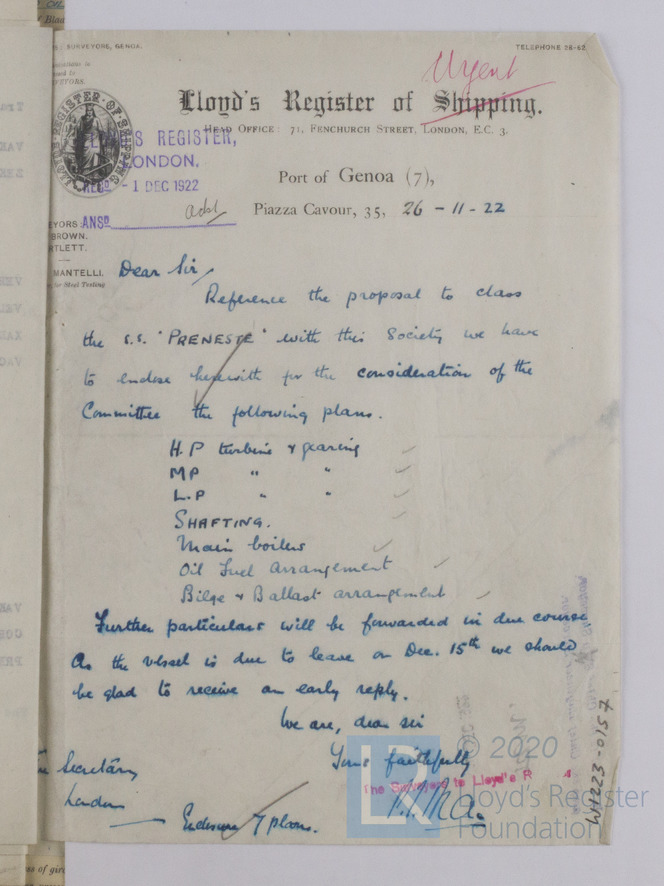 SURVEYORS, GENOA.
TELEPHONE 26-52
Urgent
Lloyd's Register of Shipping.
HEAD OFFICE: 71, FENCHURCH STREET, LONDON, E.C. 3.
LLOYD'S REGISTER OF SHIPPING
REGISTER,
LONDON.
REC'D - 1 DEC 1922
ANSD
Port of Genoa (7),
Piazza Cavour, 35, 26-11-22
BROWN.
MANTELLI.
for Steel Testing
Dear Sir,
Reference the proposal to class
the s.s. "PRENESTE" with this Society we have
to enclose herewith for the consideration of the
Committee the following plans.
H.P turbine & gearing
MP " "
L.P " "
SHAFTING.
Main boilers
Oil Fuel arrangement
Bilge & Ballast arrangement
Further particulars will be forwarded in due course
As the vessel is due to leave on Dec. 15th we should
be glad to receive an early reply.
We are, dear sir
Yours faithfully
The Surveyors to Lloyd's R
Secretary
London
Enclosure 7 plans.
W1223-0157
LR
© 2020
Lloyd's Register
Foundation